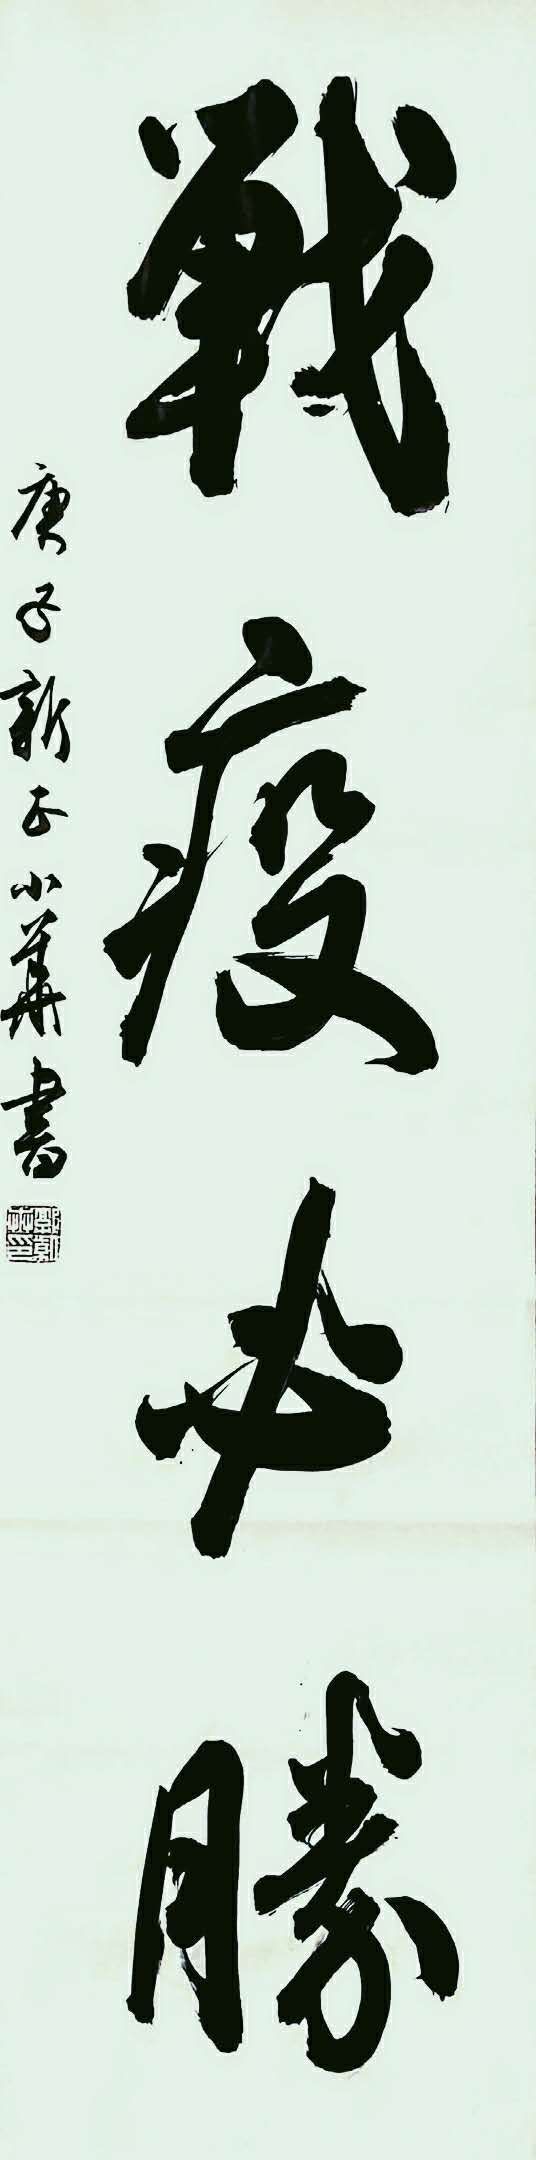 戰疫必勝
庚子新正小華書